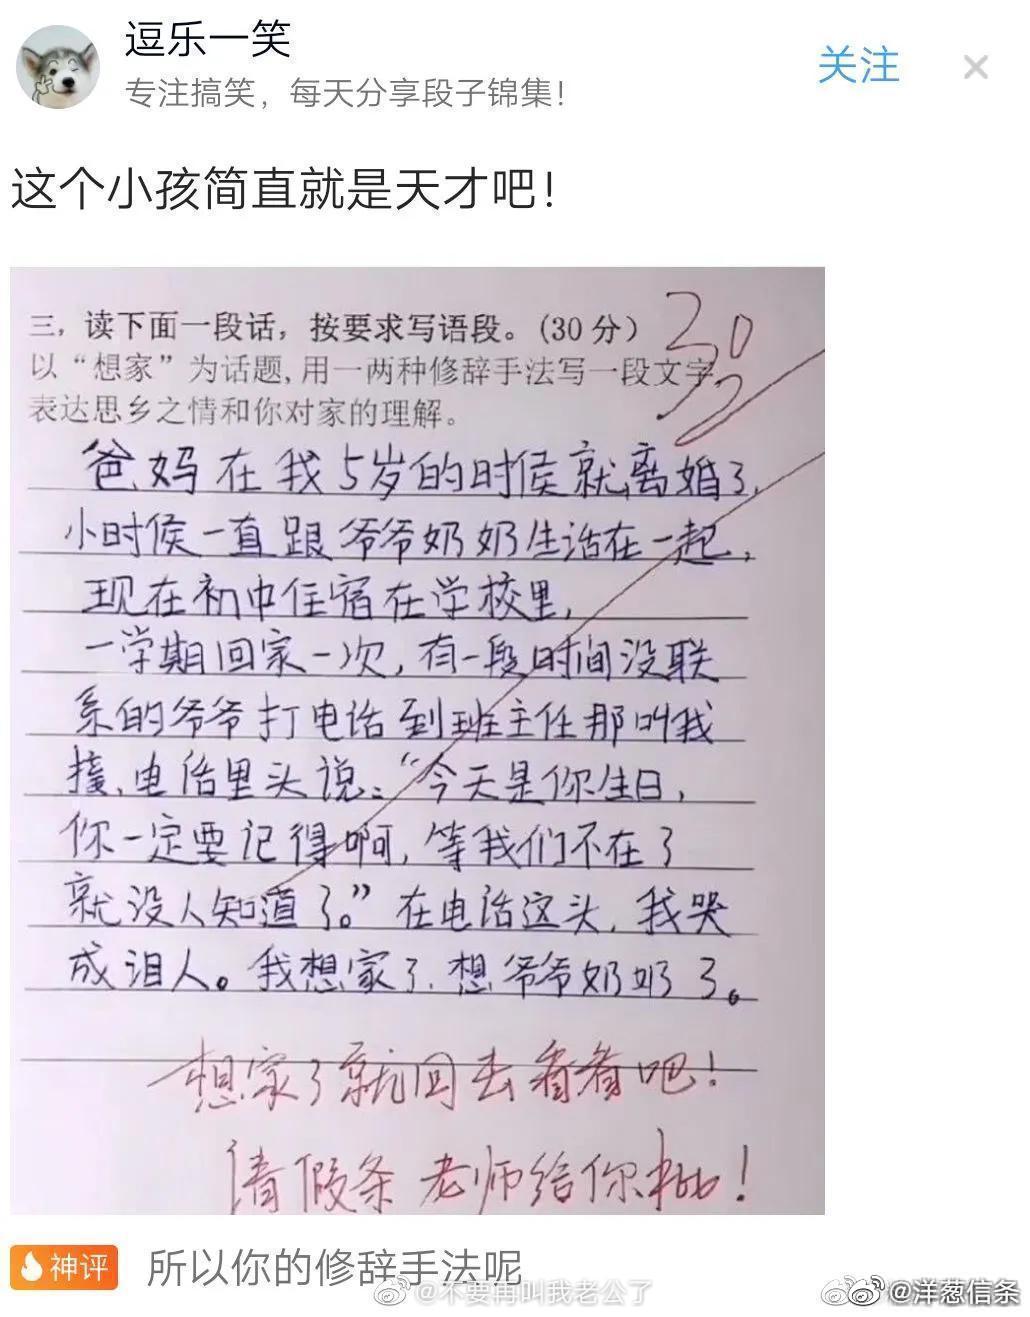 逗乐一笑
专注搞笑，每天分享段子锦集！
关注
这个小孩简直就是天才吧！
三，读下面一段话，按要求写语段。（30分）
30
以“想家”为话题,用一两种修辞手法写一段文字
表达思乡之情和你对家的理解。
爸妈在我5岁的时侯就离婚了,
小时侯一直跟爷爷奶奶生活在一起,
现在初中住宿在学校里,
一学期回家一次,有一段时间没联
系的爷爷打电话到班主任那叫我
接,电话里头说:“今天是你生日,
你一定要记得啊,等我们不在了
就没人知道了。”在电话这头,我哭
成泪人。我想家了,想爷爷奶奶了。
想家了就回去看看吧!
请假条 老师给你批!
神评 所以你的修辞手法呢
@不要再叫我老公了
@洋葱信条